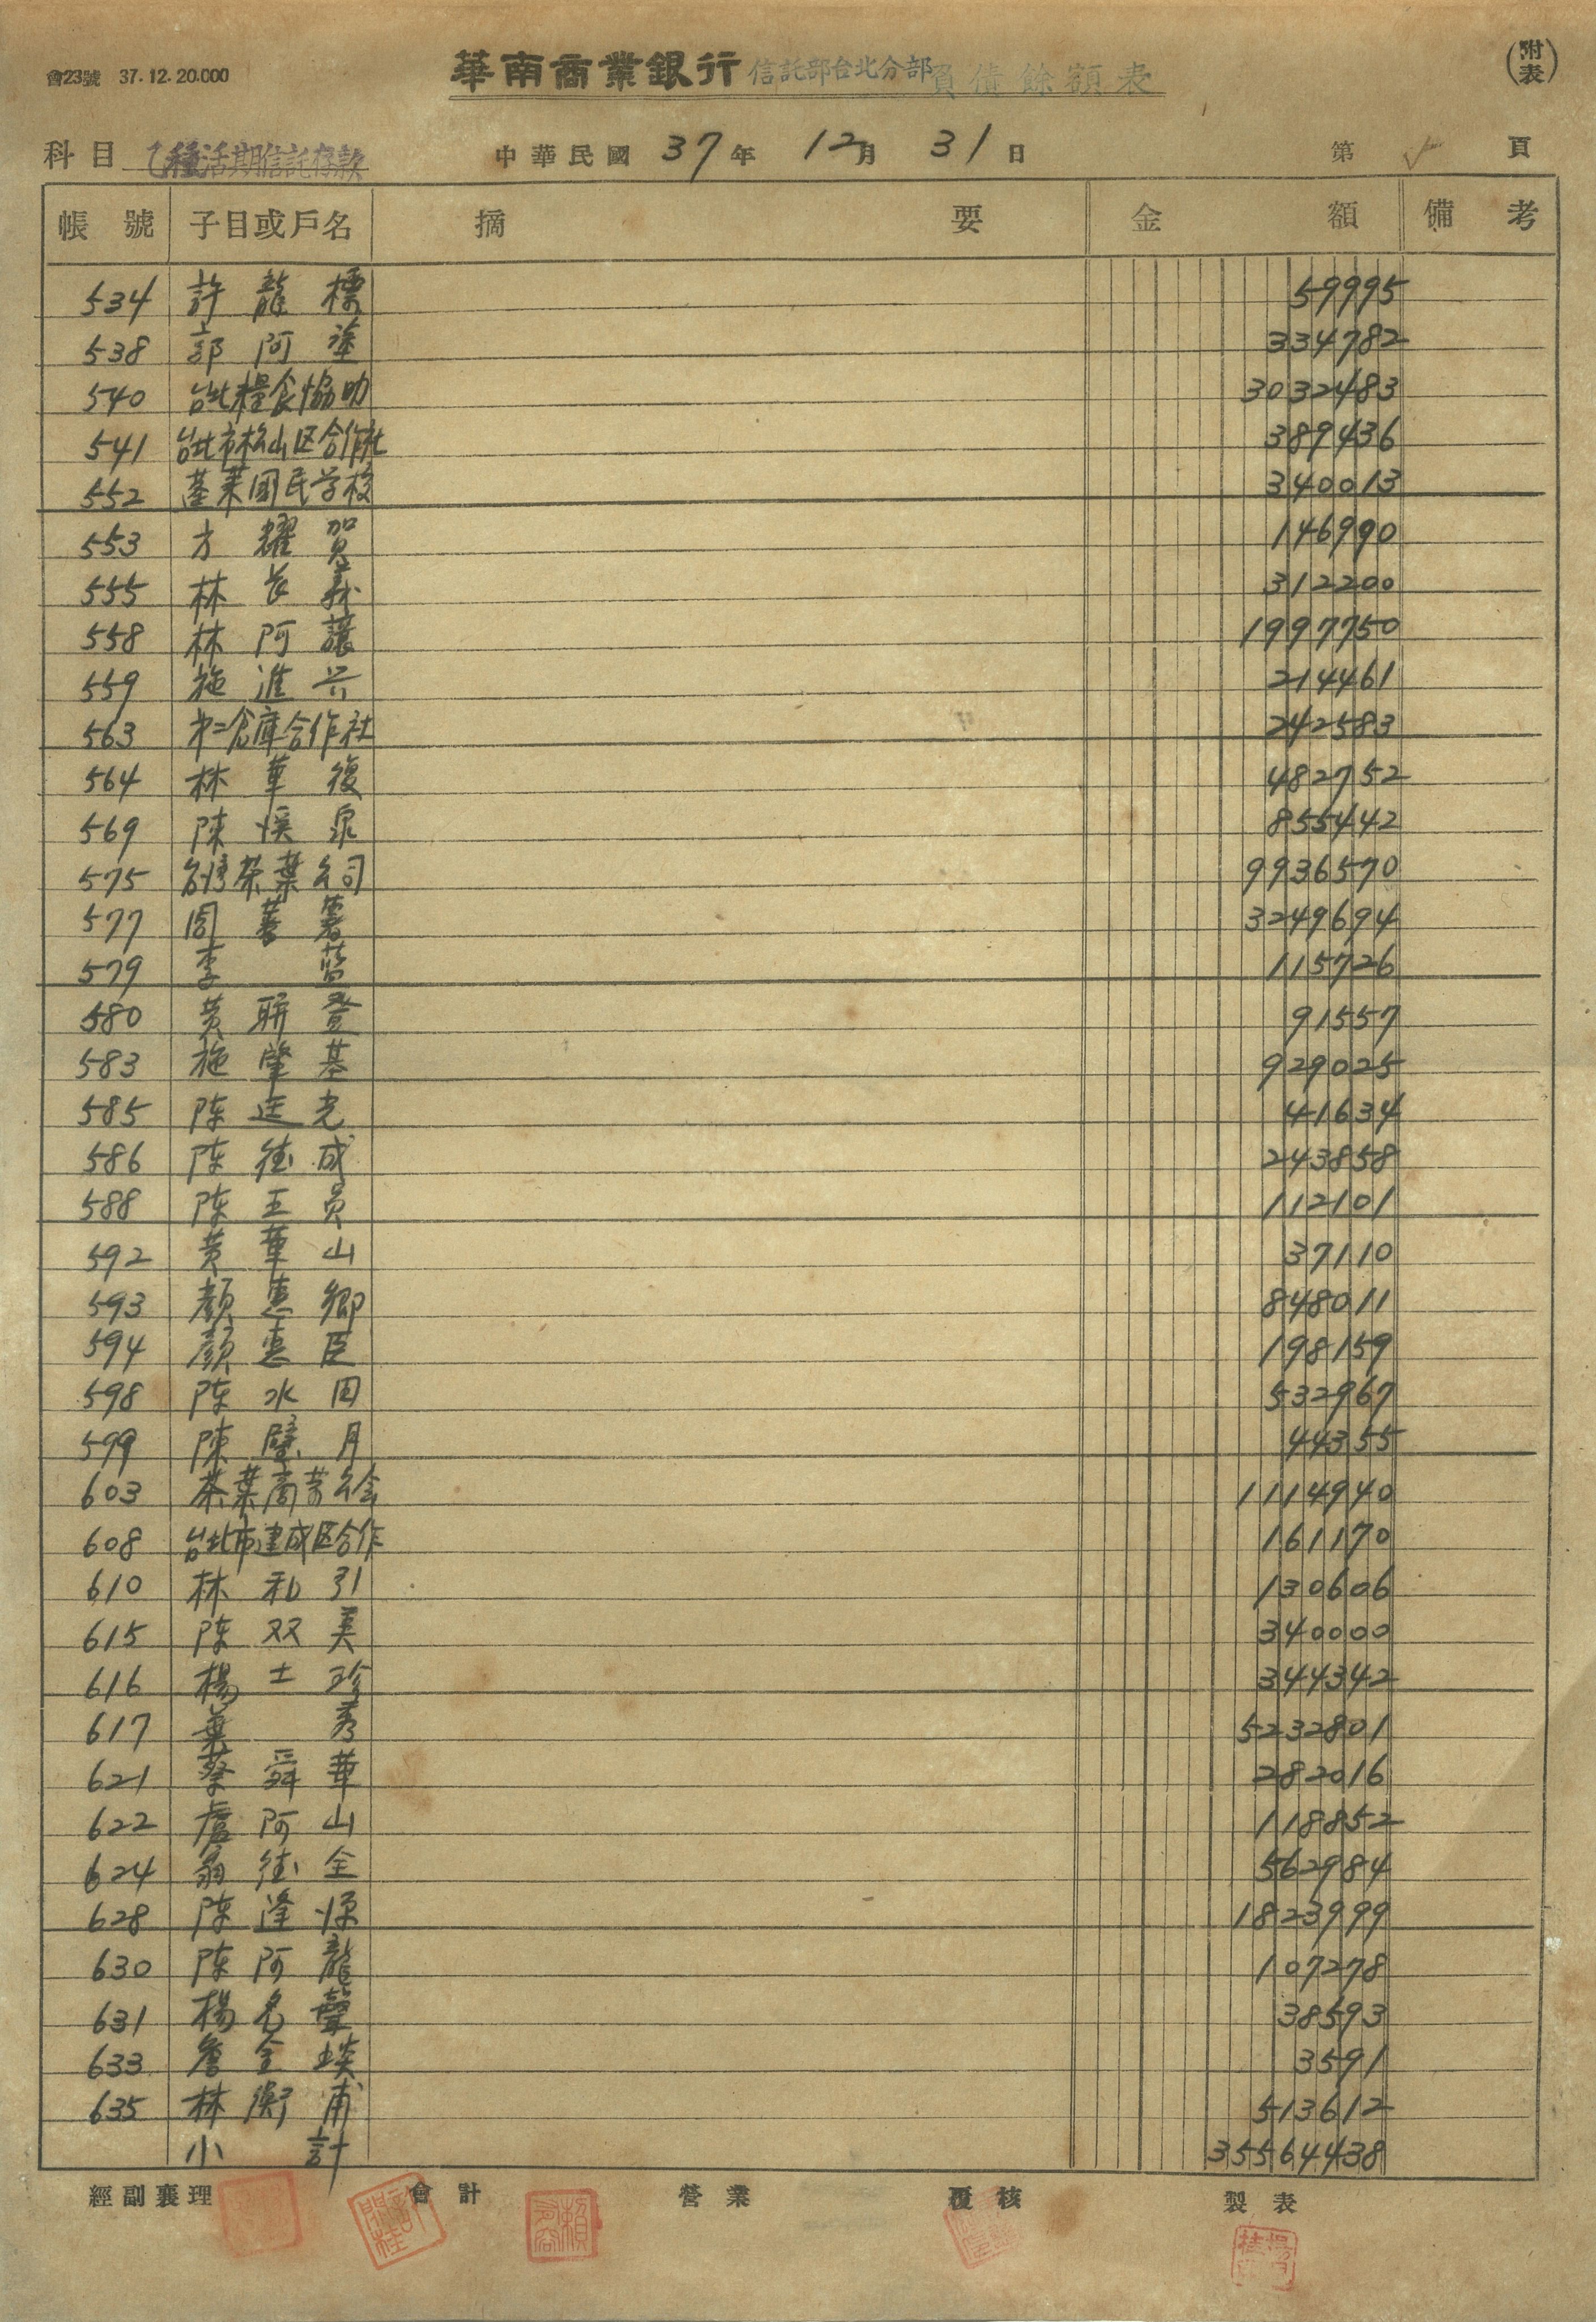 會23號 37.12.20.000
華南商業銀行 信託部台北分部 負債餘額表
(附表)
科目 乙種活期信託存款 中華民國 37年 12月 31日 第 頁
帳號 子目或戶名 摘要 金額 備考
534 許龍標 59995
538 郭阿塗 334782
540 台北糧食協助 3032483
541 台北市松山区合作社 389436
552 蓬莱國民学校 340013
553 方耀賀 146990
555 林長義 312200
558 林阿讓 1997750
559 施進兴 214461
563 才二倉庫合作社 242583
564 林華復 482752
569 陳溪泉 855442
575 台湾茶葉公司 9936570
577 周 3249694
579 李 115726
580 黄聯登 91557
583 施肇基 929025
585 陈廷光 41634
586 陈德成 243858
588 陈玉員 112101
592 黄華山 37110
593 顔惠卿 848011
594 顔惠臣 198159
598 陈水田 532967
599 陳璧月 44355
603 茶葉商業公会 1114940
608 台北市建成区合作 161170
610 林和引 130606
615 陈双美 340000
616 楊士珍 344342
617 葉秀 5232801
621 蔡舜華 282016
622 盧阿山 118852
624 翁德全 562984
628 陈逢源 1823999
630 陈阿龍 107278
631 楊名聲 38593
633 詹金琰 3591
635 林衡甫 513612
小計 35564438
經副襄理 會計 營業 覆核 製表